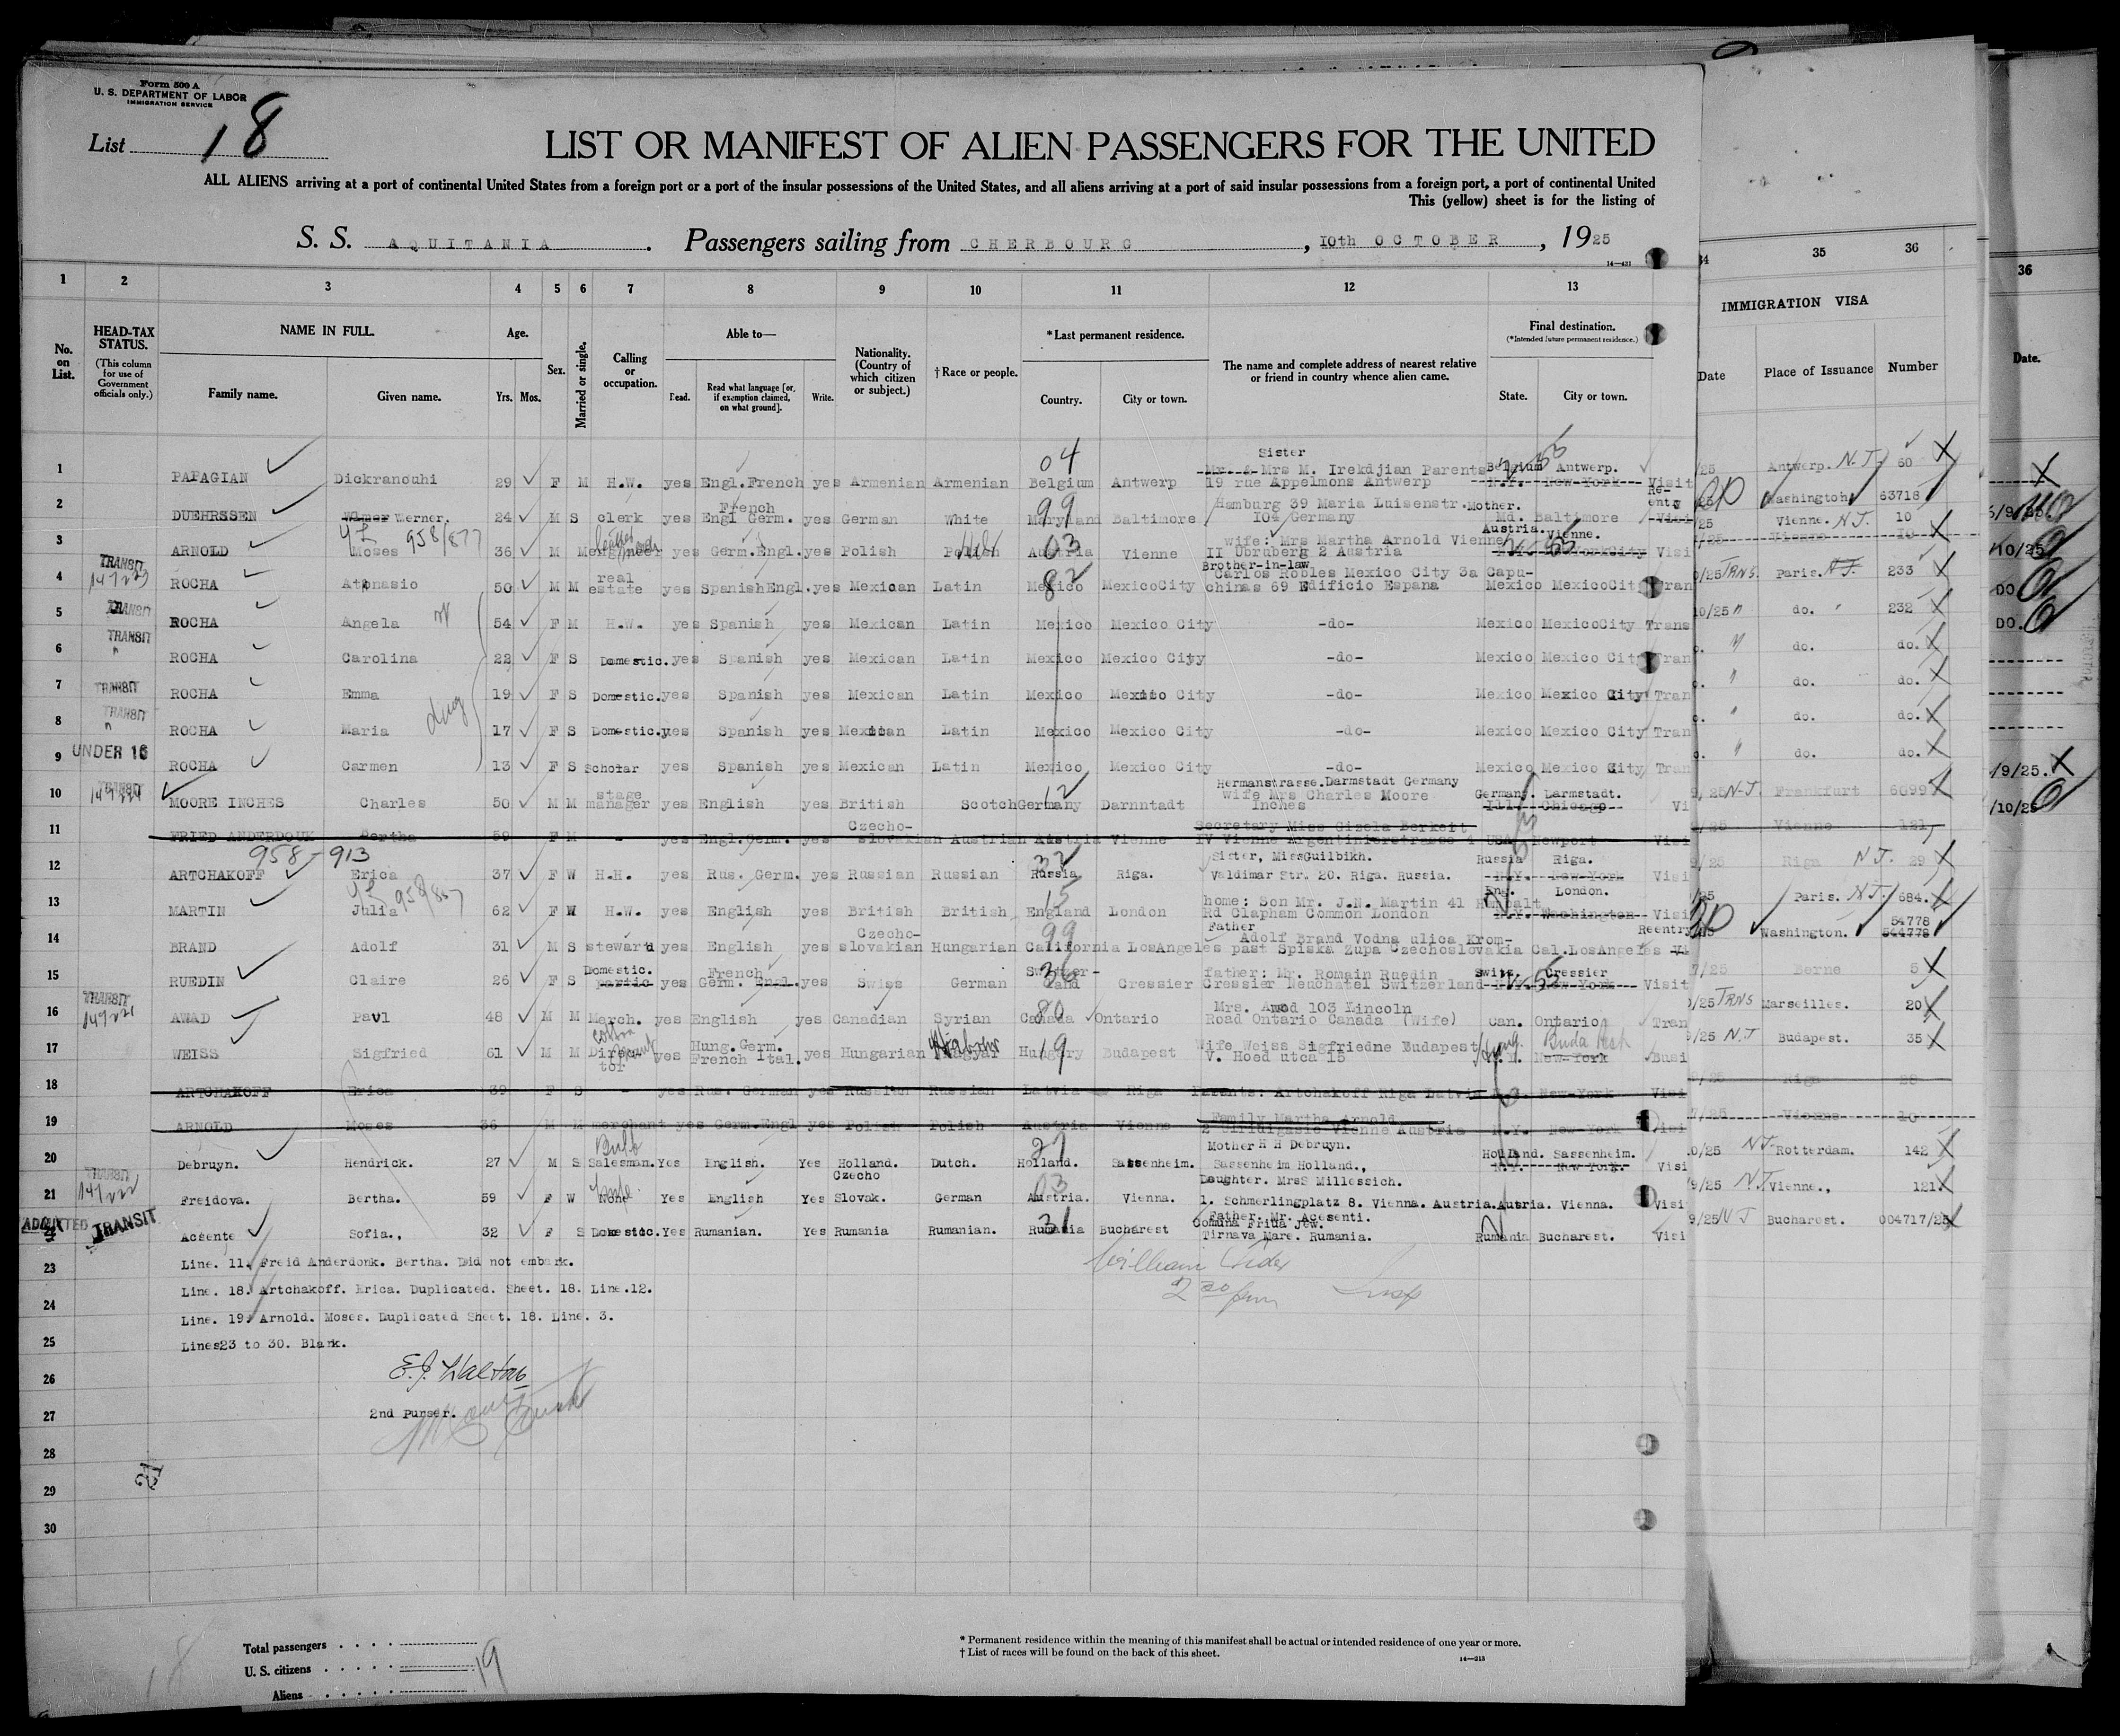 Form 500 A
U. S. DEPARTMENT OF LABOR
IMMIGRATION SERVICE
List 18
LIST OR MANIFEST OF ALIEN PASSENGERS FOR THE UNITED
ALL ALIENS arriving at a port of continental United States from a foreign port or a port of the insular possessions of the United States, and all aliens arriving at a port of said insular possessions from a foreign port, a port of continental United
This (yellow) sheet is for the listing of
S. S. AQUITANIA. Passengers sailing from CHERBOURG, 10th OCTOBER, 1925
14—431
1 2 3 4 5 6 7 8 9 10 11 12 13 34 35 36 36
IMMIGRATION VISA
No. on List. HEAD-TAX STATUS. (This column for use of Government officials only.) NAME IN FULL. Family name. Given name. Age. Yrs. Mos. Sex. Married or single. Calling or occupation. Able to— Read. Read what language [or, if exemption claimed, on what ground]. Write. Nationality. (Country of which citizen or subject.) † Race or people. *Last permanent residence. Country. City or town. The name and complete address of nearest relative or friend in country whence alien came. Final destination. (*Intended future permanent residence.) State. City or town. Date Place of Issuance Number Date.
04 Sister
1 PAPAGIAN Dickranouhi 29 F M H.W. yes Engl.French yes Armenian Armenian Belgium Antwerp Mr. & Mrs M. Irekdjian Parents 19 rue Appelmons Antwerp Belgium Antwerp. N.Y. New-York Visit /25 Antwerp. N.J. 60
2 DUEHRSSEN Wimer Werner. 24 M S clerk yes French Engl Germ. yes German White 99 Maryland Baltimore Hamburg 39 Maria Luisenstr. Mother. 104 Germany Md. Baltimore Re-enty Visi /25 Washington 63718
958/877
3 ARNOLD Moses 36 M M yes Germ.Engl. yes Polish Polish 03 Austria Vienne wife: Mrs Martha Arnold Vienne II Ubruberg 2 Austria Austria. Vienne. Visi /25 Vienne. N.J. 10
4 TRANSIT ROCHA Atanasio 50 M M real estate yes SpanishEngl. yes Mexican Latin 82 Mexico MexicoCity Brother-in-law Carlos Robles Mexico City 3a Capuchinas 69 Edificio Espana Mexico MexicoCit Tran /25 TRNS. Paris. N.J. 233
5 TRANSIT ROCHA Angela 54 F M H.W. yes Spanish yes Mexican Latin Mexico Mexico City -do- Mexico MexicoCity Trans 10/25 " do. 232
6 TRANSIT " ROCHA Carolina 22 F S Domestic. yes Spanish yes Mexican Latin Mexico Mexico City -do- Mexico Mexico Cit Tran " do. do.
7 TRANSIT ROCHA Emma 19 F S Domestic. yes Spanish yes Mexican Latin Mexico Mexico City -do- Mexico Mexico City Tran " do. do.
8 TRANSIT " ROCHA Maria 17 F S Domestic. yes Spanish yes Mexican Latin Mexico Mexico City -do- Mexico Mexico City Tran " do. do.
9 UNDER 16 ROCHA Carmen 13 F S Scholar yes Spanish yes Mexican Latin Mexico Mexico City -do- Mexico Mexico City Tran " do. do.
10 TRANSIT MOORE INCHES Charles 50 M M stage manager yes English yes British Scotch 12 Germany Darmntadt Hermanstrasse.Darmstadt Germany wife Mrs Charles Moore Inches Germany. Darmstadt. Ill. Chicago Vi /25 N.J. Frankfurt 6099
11 FRIED ANDERDOUK Bertha 59 F M - yes Engl.Germ. yes Czecho-slovakian Austrian Austria Vienne Secretary Miss Gizela Berkott IV Vienne Argentinierstrasse 4 USA Newport Visi /25 Vienne 121
958-913
12 ARTCHAKOFF Erica 37 F W H.H. yes Rus. Germ. yes Russian Russian 32 Russia Riga. Sister, MissGuilbikh. Valdimar Str. 20. Riga. Russia. Russia Riga. N.Y. New-York Visi /25 Riga N.J. 29
13 MARTIN Julia 62 F W H.W. yes English yes British British 15 England London home: Son Mr. J.N. Martin 41 Rd Clapham Common London Eng. London. N.Y. Washington Visi /25 Paris. N.J. 684.
14 BRAND Adolf 31 M S steward yes English yes Czecho-slovakian Hungarian 99 California LosAngeles Father Adolf Brand Vodna ulica Krom- past Spiska Zupa Czechoslovakia Cal. LosAngeles Reentry Washington. 54778 544778
15 RUEDIN Claire 26 F S Domestic. yes French Germ. Engl. yes Swiss German Switzer-land Cressier father: Mr. Romain Ruedin Cressier Neuchatel Switzerland Swiss. Cressier New-York Visit 7/25 Berne 5
16 TRANSIT AWAD Paul 48 M M Merch. yes English yes Canadian Syrian 80 Canada Ontario Mrs. Awad 103 Lincoln Road Ontario Canada (Wife) Can. Ontario Tran /25 TRNS Marseilles. 20
17 WEISS Sigfried 61 M M Director yes Hung. Germ. French Ital. yes Hungarian Magyar 19 Hungary Budapest Wife Weiss Sigfriedne Budapest V. Hoed utca 15 Hung. Buda Pesh N.Y. New-York Busi /25 N.J Budapest. 35
18 ARTCHAKOFF Erica 39 F S - yes Rus. German yes Russian Russian Latvia Riga Parents: Artchakoff Riga Latvia New-York Visi /25 Riga 28
19 ARNOLD Moses 36 M M merchant yes Germ.Engl yes Polish Polish Austria Vienne Family Martha Arnold Vienne Austria N.Y. New-York Visi 7/25 Vienne 10
20 Debruyn. Hendrick. 27 M S Bulb Salesman. Yes English. Yes Holland. Dutch. 21 Holland. Sassenheim. Mother H H Debruyn. Sassenheim Holland., Holland. Sassenheim. N.Y. New York. Visi 0/25 N.J. Rotterdam. 142
21 TRANSIT Freidova. Bertha. 59 F W None Yes English Yes Czecho Slovak. German 03 Austria. Vienna. Daughter. MrsS Millessich. 1. Schmerlingplatz 8. Vienna. Austria. Autria. Vienna. Visi 9/25 N.J. Vienne., 121.
ADMITTED TRANSIT Acsente Sofia., 32 F S Domestic. Yes Rumanian. Yes Rumania Rumanian. 31 Rumania Bucharest Father. Mr. Acesenti. Comuna Frida Jew. Tirnava Mare. Rumania. Rumania Bucharest. Visi 9/25 N J Bucharest. 004717/25
23 Line. 11. Freid Anderdonk. Bertha. Did not embark.
24 Line. 18. Artchakoff. Erica. Duplicated. Sheet. 18. Line.12.
Line. 19. Arnold. Moses. Duplicated Sheet. 18. Line. 3.
25 Lines23 to 30. Blank.
26 E.J. Walton
27 2nd Purser.
28
29
30
Total passengers
U. S. citizens
Aliens
19
18
* Permanent residence within the meaning of this manifest shall be actual or intended residence of one year or more.
† List of races will be found on the back of this sheet.
14—213